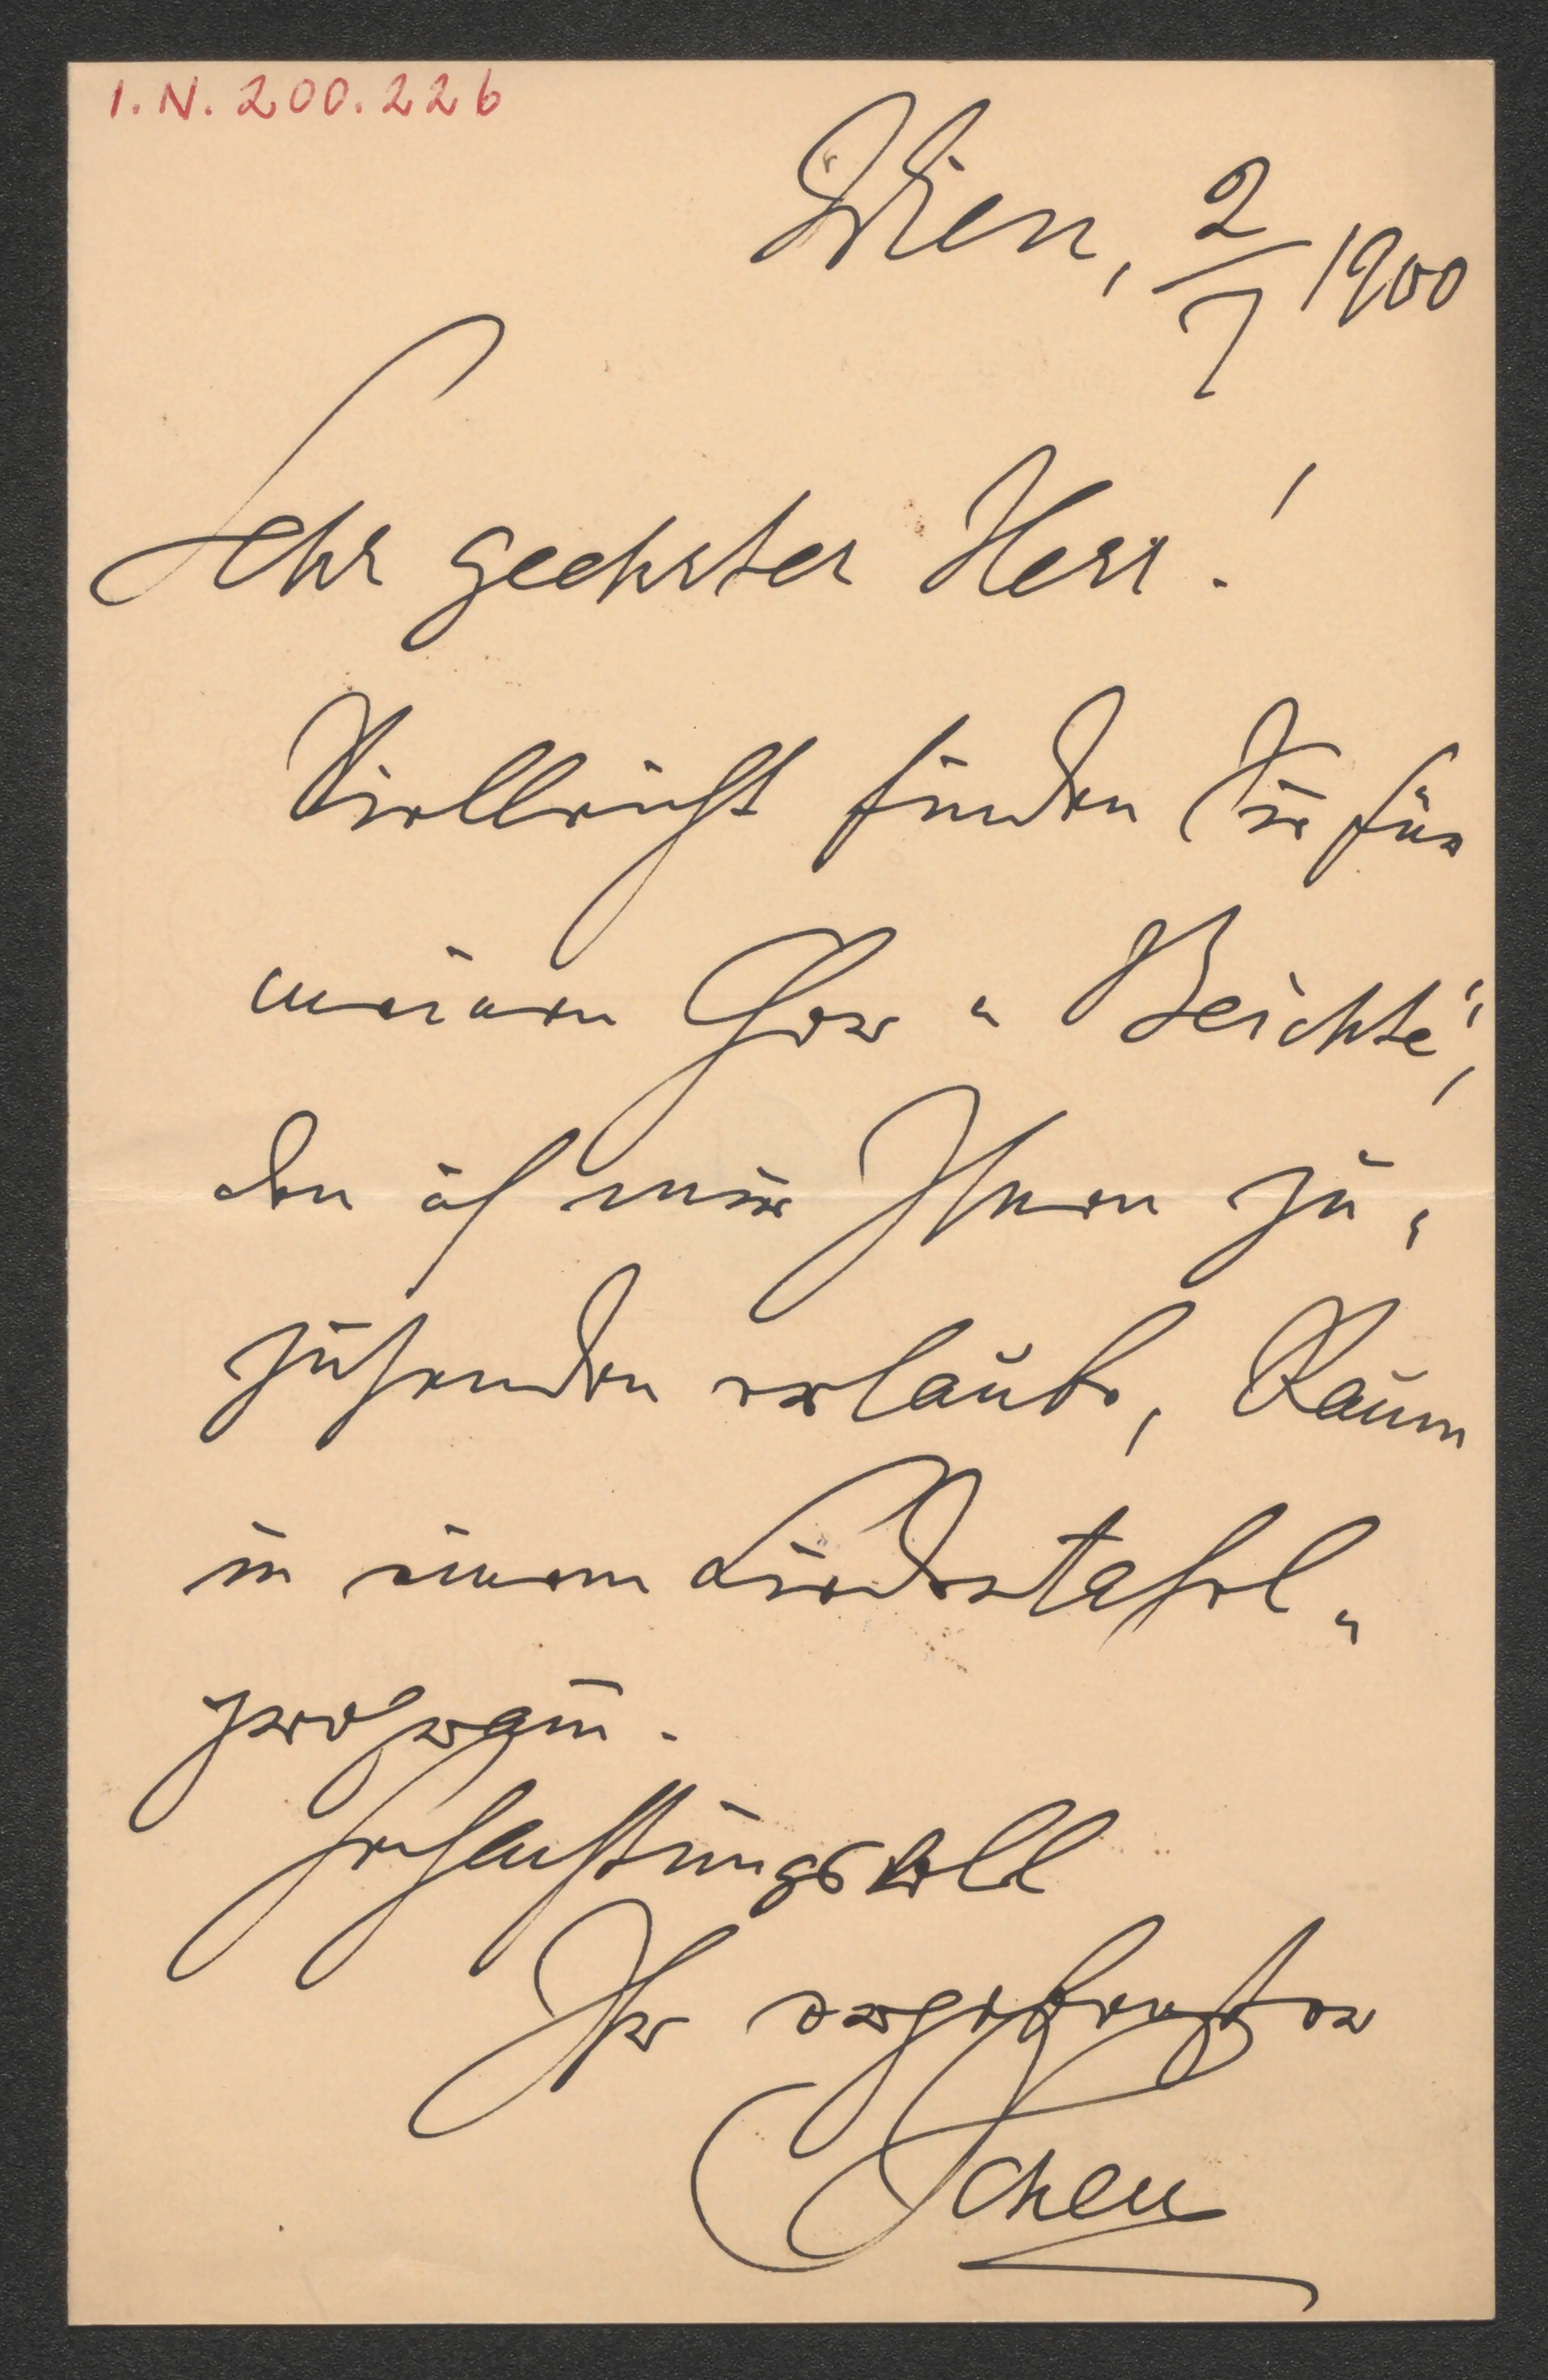 I.N. 200.226
Wien, 2/7 1900
Sehr geehrter Herr!
Vielleicht finden Sie für
meinen Chor „Beichte“,
den ich mir Ihnen zu-
zusenden erlaube, Raum
in einem Liedertafel-
program̄.
Hochachtungsvoll
Ihr ergebenster
Scheu